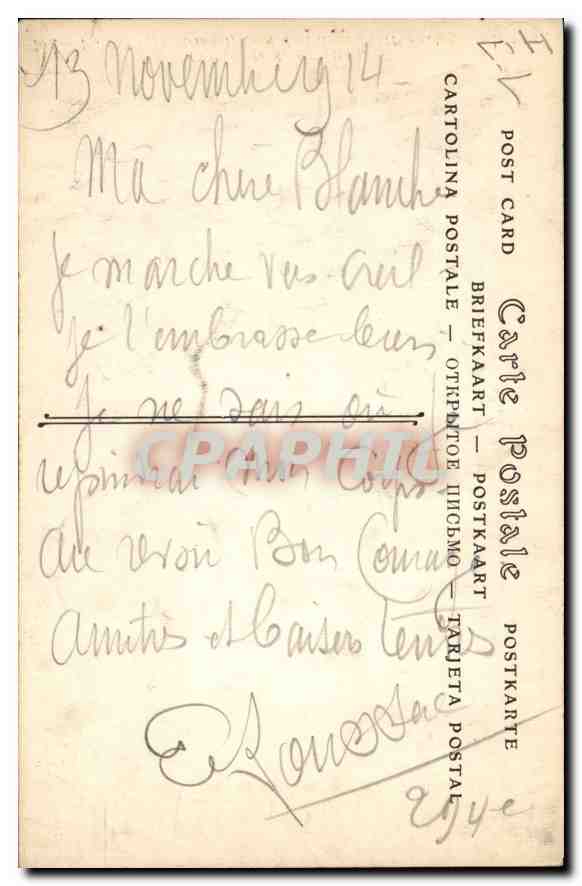 13 Novembre 14 -
Ma chère Blanche
je marche vers Creil
je t'embrasse bien
je ne sais où
rejoindrai mon Corps
au revoir Bon Courage
Amitiés et baisers tendres
E Roussac
294e
POST CARD Carte Postale POSTKARTE
BRIEFKAART — POSTKAART
CARTOLINA POSTALE — ОТКРЫТОЕ ПИСЬМО — TARJETA POSTAL
CPAPHIL